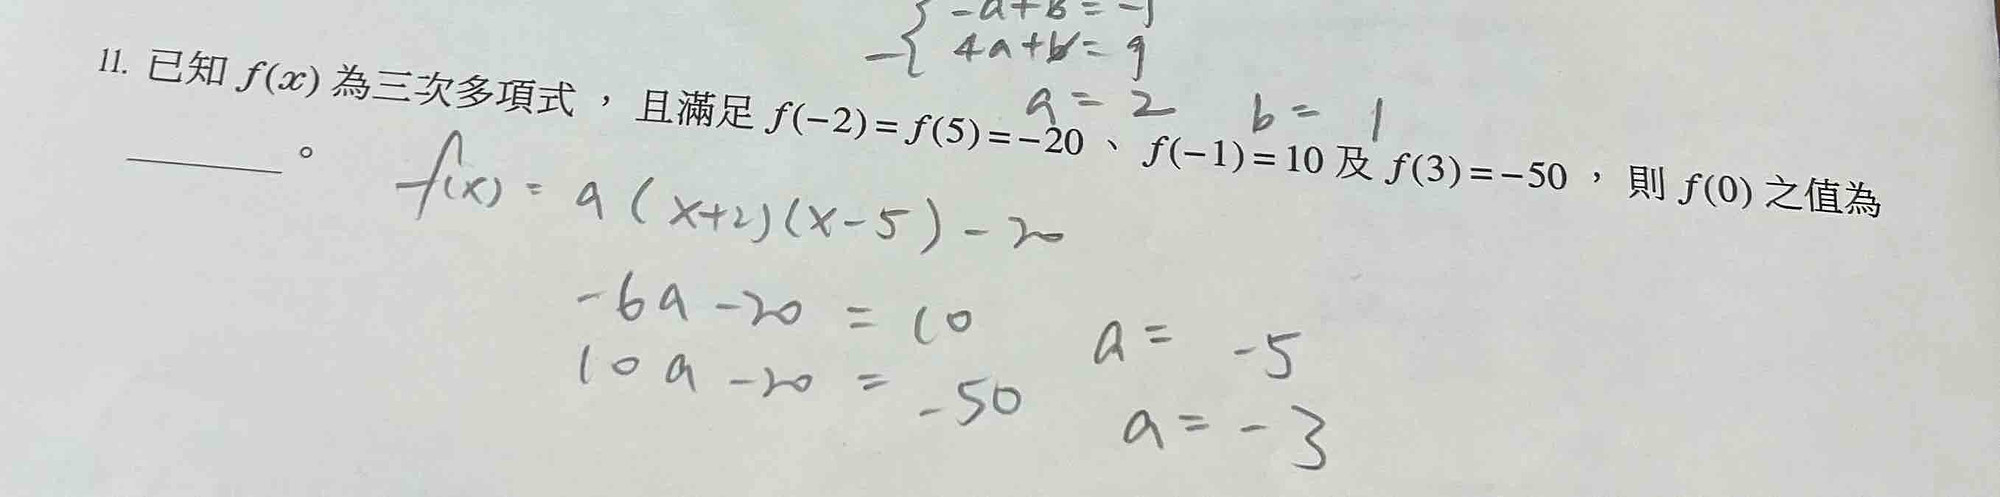 -a+b=-1
-{ 4a+b=9
a=2 b=1
11. 已知 f(x) 為三次多項式，且滿足 f(−2)=f(5)=−20、f(−1)=10 及 f(3)=−50，則 f(0) 之值為
______。
f(x) = a(x+2)(x-5)-20
-6a-20 = 10 a= -5
10a-20 = -50 a=-3